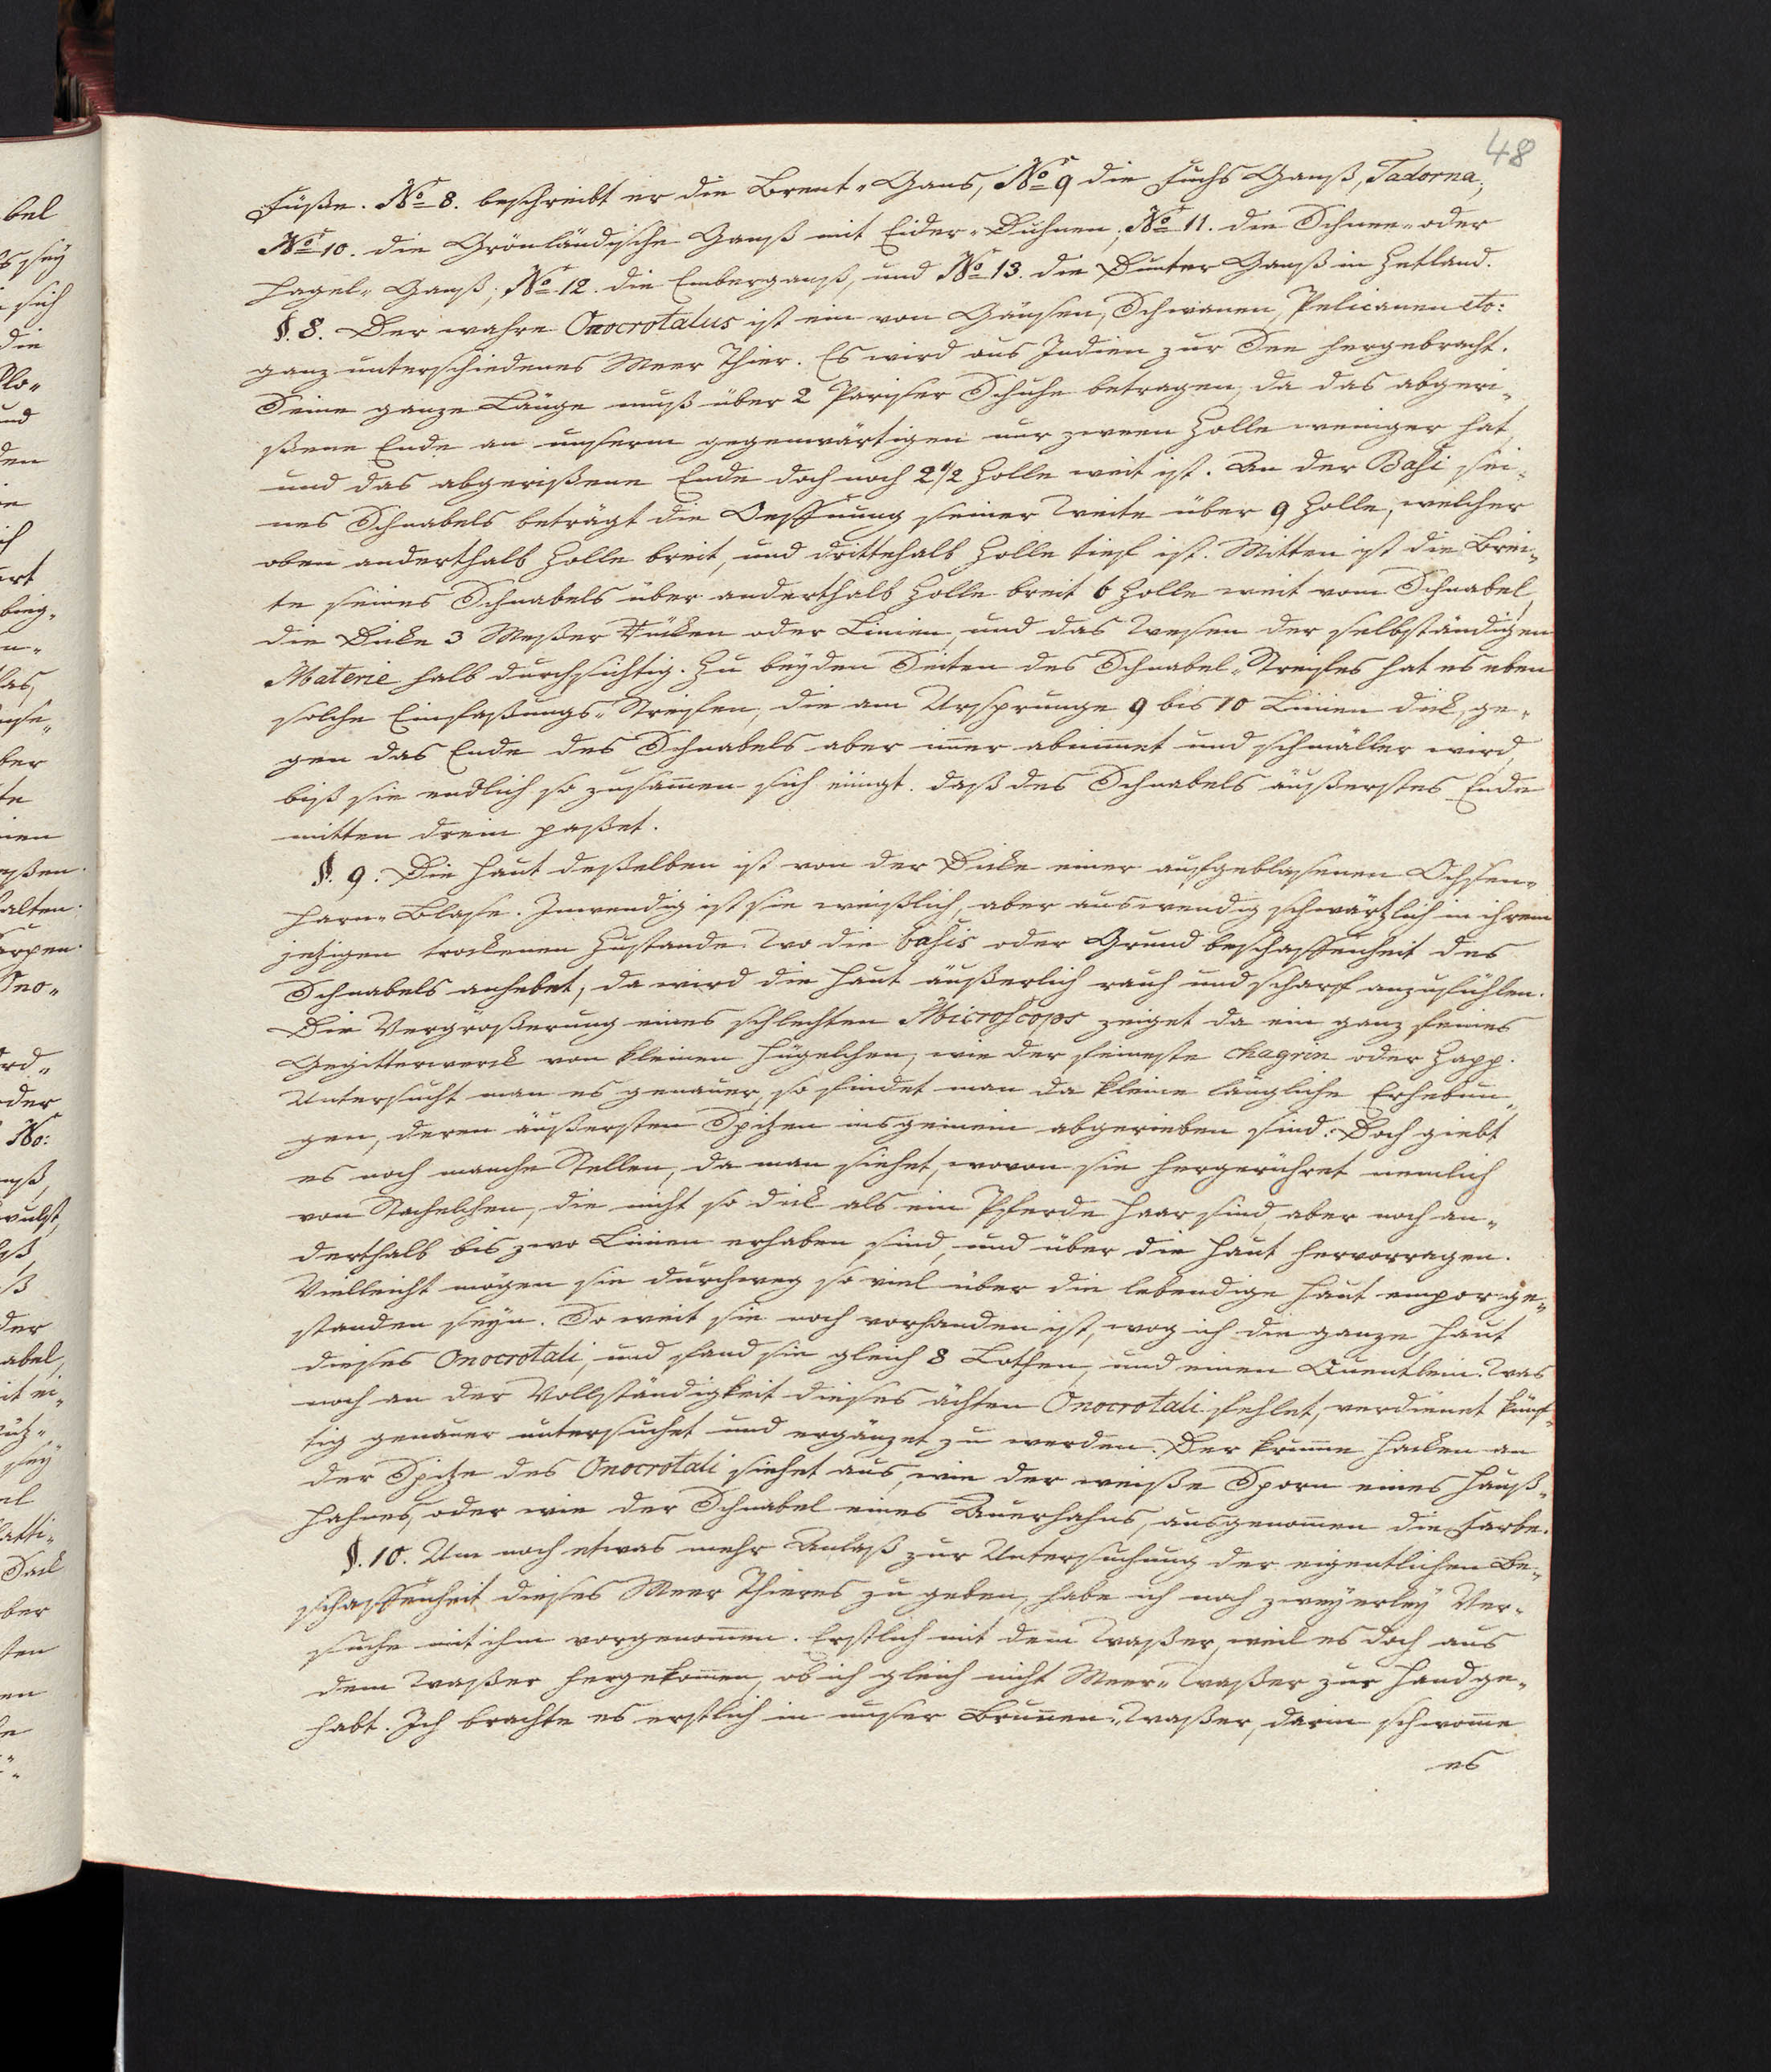 48
Füße. No 8. beschreibt er die Brent-Gans, No 9 die Fuchs Ganß, Tadorna,
No 10. die Grönländische Ganß mit Eider-Duhnen; No 11. die Schnee- oder
Hagel-Ganß; No 12. die Emberganß, und No 13. die Dunter Ganß in Hetland.
§. 8. Der wahre Onocrotalus ist ein von Gänsen, Schwanen, Pelicanen etc:
ganz unterschiedenes Meer Thier. Es wird aus Indien zur See hergebracht.
Seine ganze Länge muß über 2 Pariser Schuhe betragen, da das abgeri-
ßene Ende an unserm gegenwärtigen nur zween Zolle weniger hat,
und das abgerißene Ende doch noch 2 1/2 Zolle weit ist. An der Basi sei-
nes Schnabels beträgt die Oeffnung seiner Weite über 9 Zolle, welcher
oben anderthalb Zolle breit, und drittehalb Zolle tief ist. Mitten ist die Brei-
te seines Schnabels über anderthalb Zolle breit 6 Zolle weit vom Schnabel,
die Dicke 3 Meßer Rücken oder Linien, und das Wesen der selbständigen
Materie halb durchsichtig. Zu beyden Seiten des Schnabel-Streifes hat es eben
solche Einfaßungs-Streifen, die am Ursprunge 9 bis 10 Linien dick, ge-
gen das Ende des Schnabels aber imer abnimmet und schmäller wird,
biß sie endlich so zusamen sich eingt. daß des Schnabels äußerstes Ende
mitten drein paßet.
§. 9. Die Haut deßelben ist von der Dicke einer aufgeblasenen Ochsen-
Harn-Blase. Inwendig ist sie weißlich, aber auswendig schwärtzlich in ihrem
jetzigen trockenen Zustande. Wo die basis oder Grund beschaffenheit des
Schnabels anhebet, da wird die Haut äußerlich rauh und scharf anzufühlen.
Die Vergrößerung eines schlechten Microscops zeiget da ein ganz feines
Gegitterwerck von kleinen Hügelchen, wie der feineste chagrin oder Zapp.
Untersucht man es genauer, so findet man da kleine längliche Erhebun-
gen, deren äußersten Spitzen insgemein abgerieben sind. Doch giebt
es noch manche Stellen, da man siehet, wovon sie hergerühret nemlich
von Stachelchen, die nicht so dick als ein Pferde Haar sind, aber noch an-
derthalb bis zwo Linien erhaben sind, und über die Haut hervorragen.
Vielleicht mögen sie durchweg so viel über die lebendige Haut empor ge-
standen seyn. So weit sie noch vorhanden ist, wog ich die ganze Haut
dieses Onocrotali, und fand sie gleich 8 Lothen, und einen Quentlein. Was
noch an der Vollständigkeit dieses ächten Onocrotali fehlet, verdienet künf-
tig genauer untersuchet und ergänzet zu werden. Der krumme Hacken an
der Spitze des Onocrotali siehet aus, wie der weiße Sporn eines Hauß-
Hahnes, oder wie der Schnabel eines Auerhahns, ausgenomen die Farbe.
§. 10. Um noch etwas mehr Anlaß zur Untersuchung der eigentlichen Be-
schaffenheit dieses Meer Thieres zu geben, habe ich noch zweyerley Ver-
suche mit ihm vorgenomen. Erstlich mit dem Waßer, weil es doch aus
dem Waßer hergekomen, ob ich gleich nicht Meer-Waßer zur Hand ge-
habt. Ich brachte es erstlich in unser Brunen-Waßer, darin schwome
es